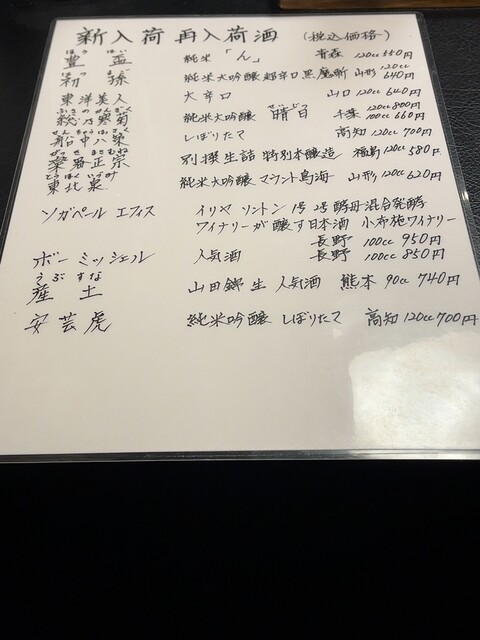 新入荷 再入荷酒 (税込価格)
ほう はい
豊盃 純米「ん」 青森 120cc 550円
初孫 純米大吟醸 超辛口 黒魔斬 山形 120cc 640円
東洋美人 大辛口 山口 120cc 640円
ふさのかんぎく
総乃寒菊 純米大吟醸 晴日 千葉 120cc 800円 100cc 660円
せんちゅうはっさく
船中八策 しぼりたて 高知 120cc 700円
栄四郎正宗 別撰生詰 特別本醸造 福島 120cc 580円
とうほくいづみ
東北泉 純米大吟醸 マウント鳥海 山形 120cc 620円
ソガペール エフィス イリヤ ソントン 1号 2号酵母混合発酵
ワイナリーが醸す日本酒 小布施ワイナリー
長野 100cc 950円
ボー ミッシェル 人気酒 長野 100cc 850円
うぶ すな
産土 山田錦 生 人気酒 熊本 90cc 740円
安芸虎 純米吟醸 しぼりたて 高知 120cc 700円